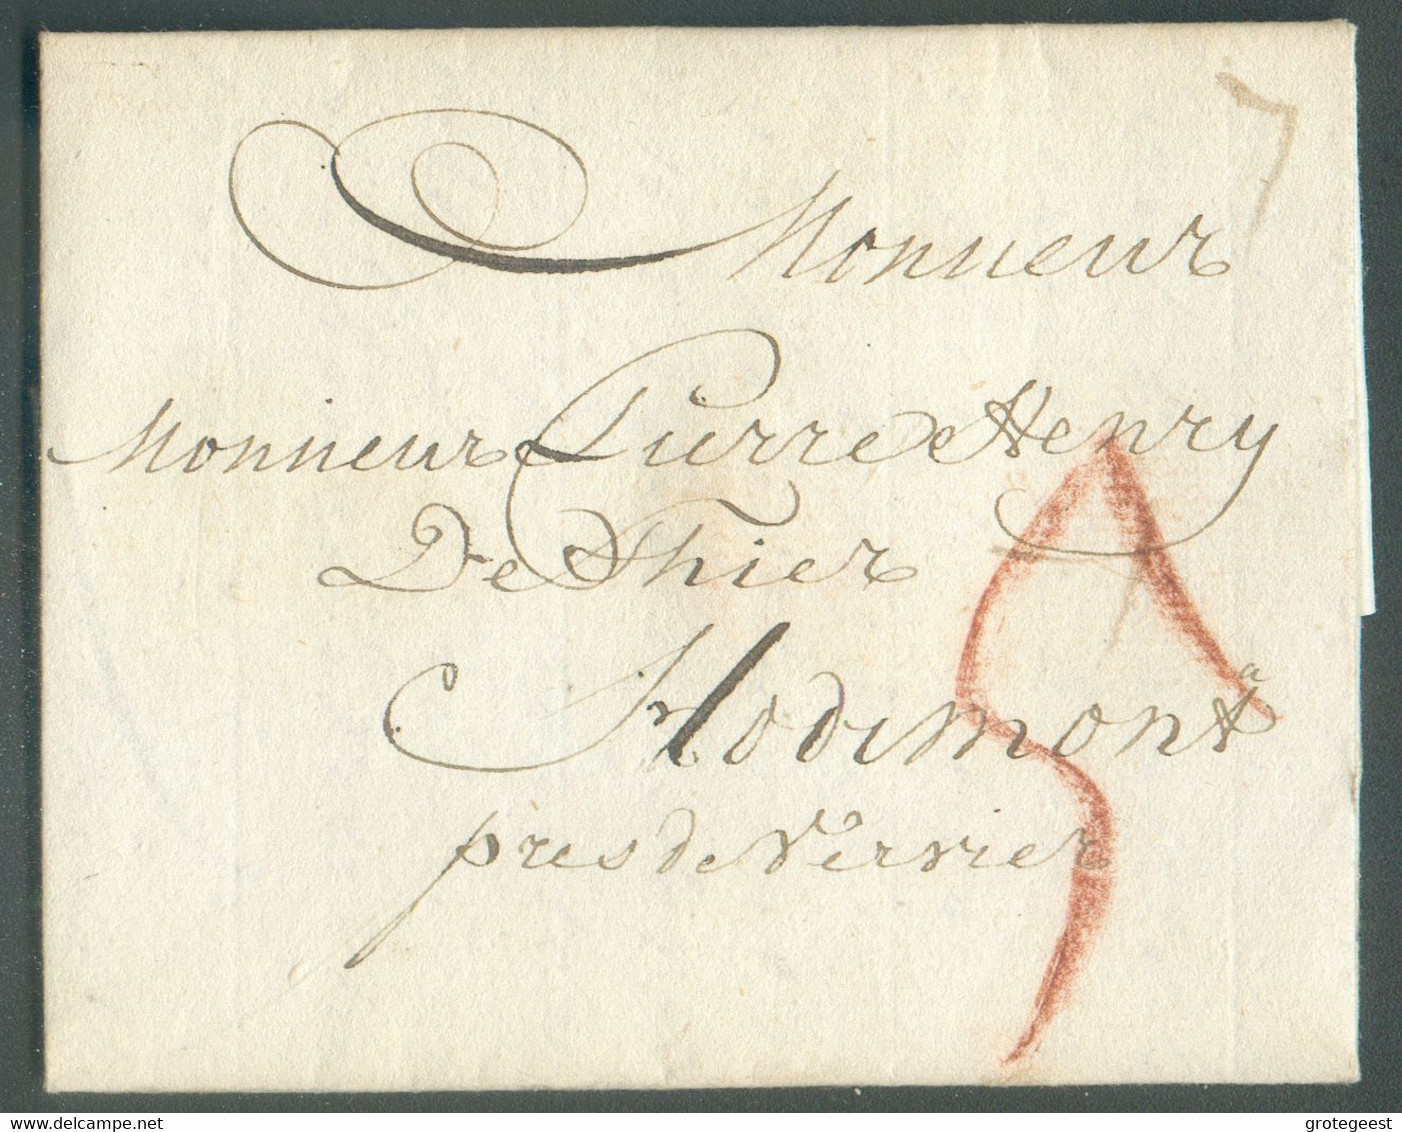 Monsieur
Monsieur Pierre Henry
De Thier
a
Hodimont
pres de Vervier
www.delcampe.net
grotegeest